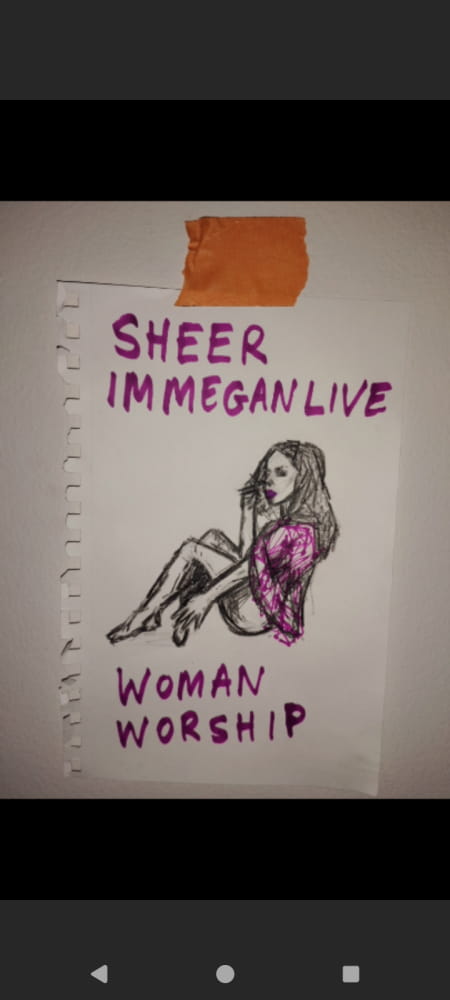 SHEER
IMMEGANLIVE
WOMAN
WORSHIP